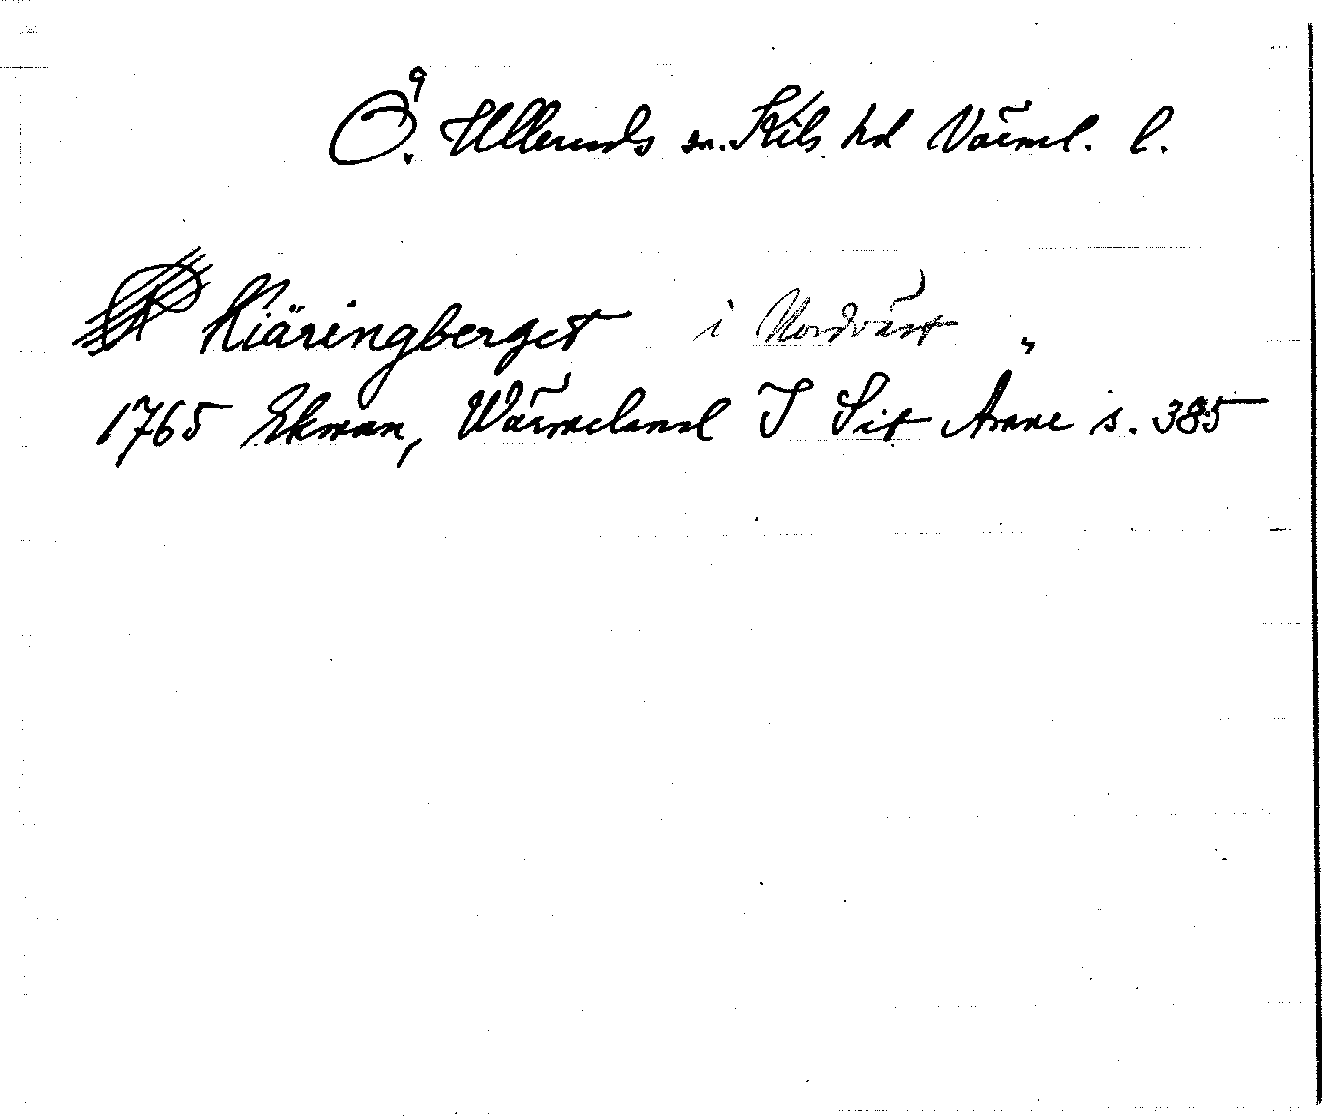 Ö. Ulleruds sn. Kils hd Värml. l.
Kiäringberget i Nordväst "
1765 Ekman, Wärmeland I Sit Amne s. 385